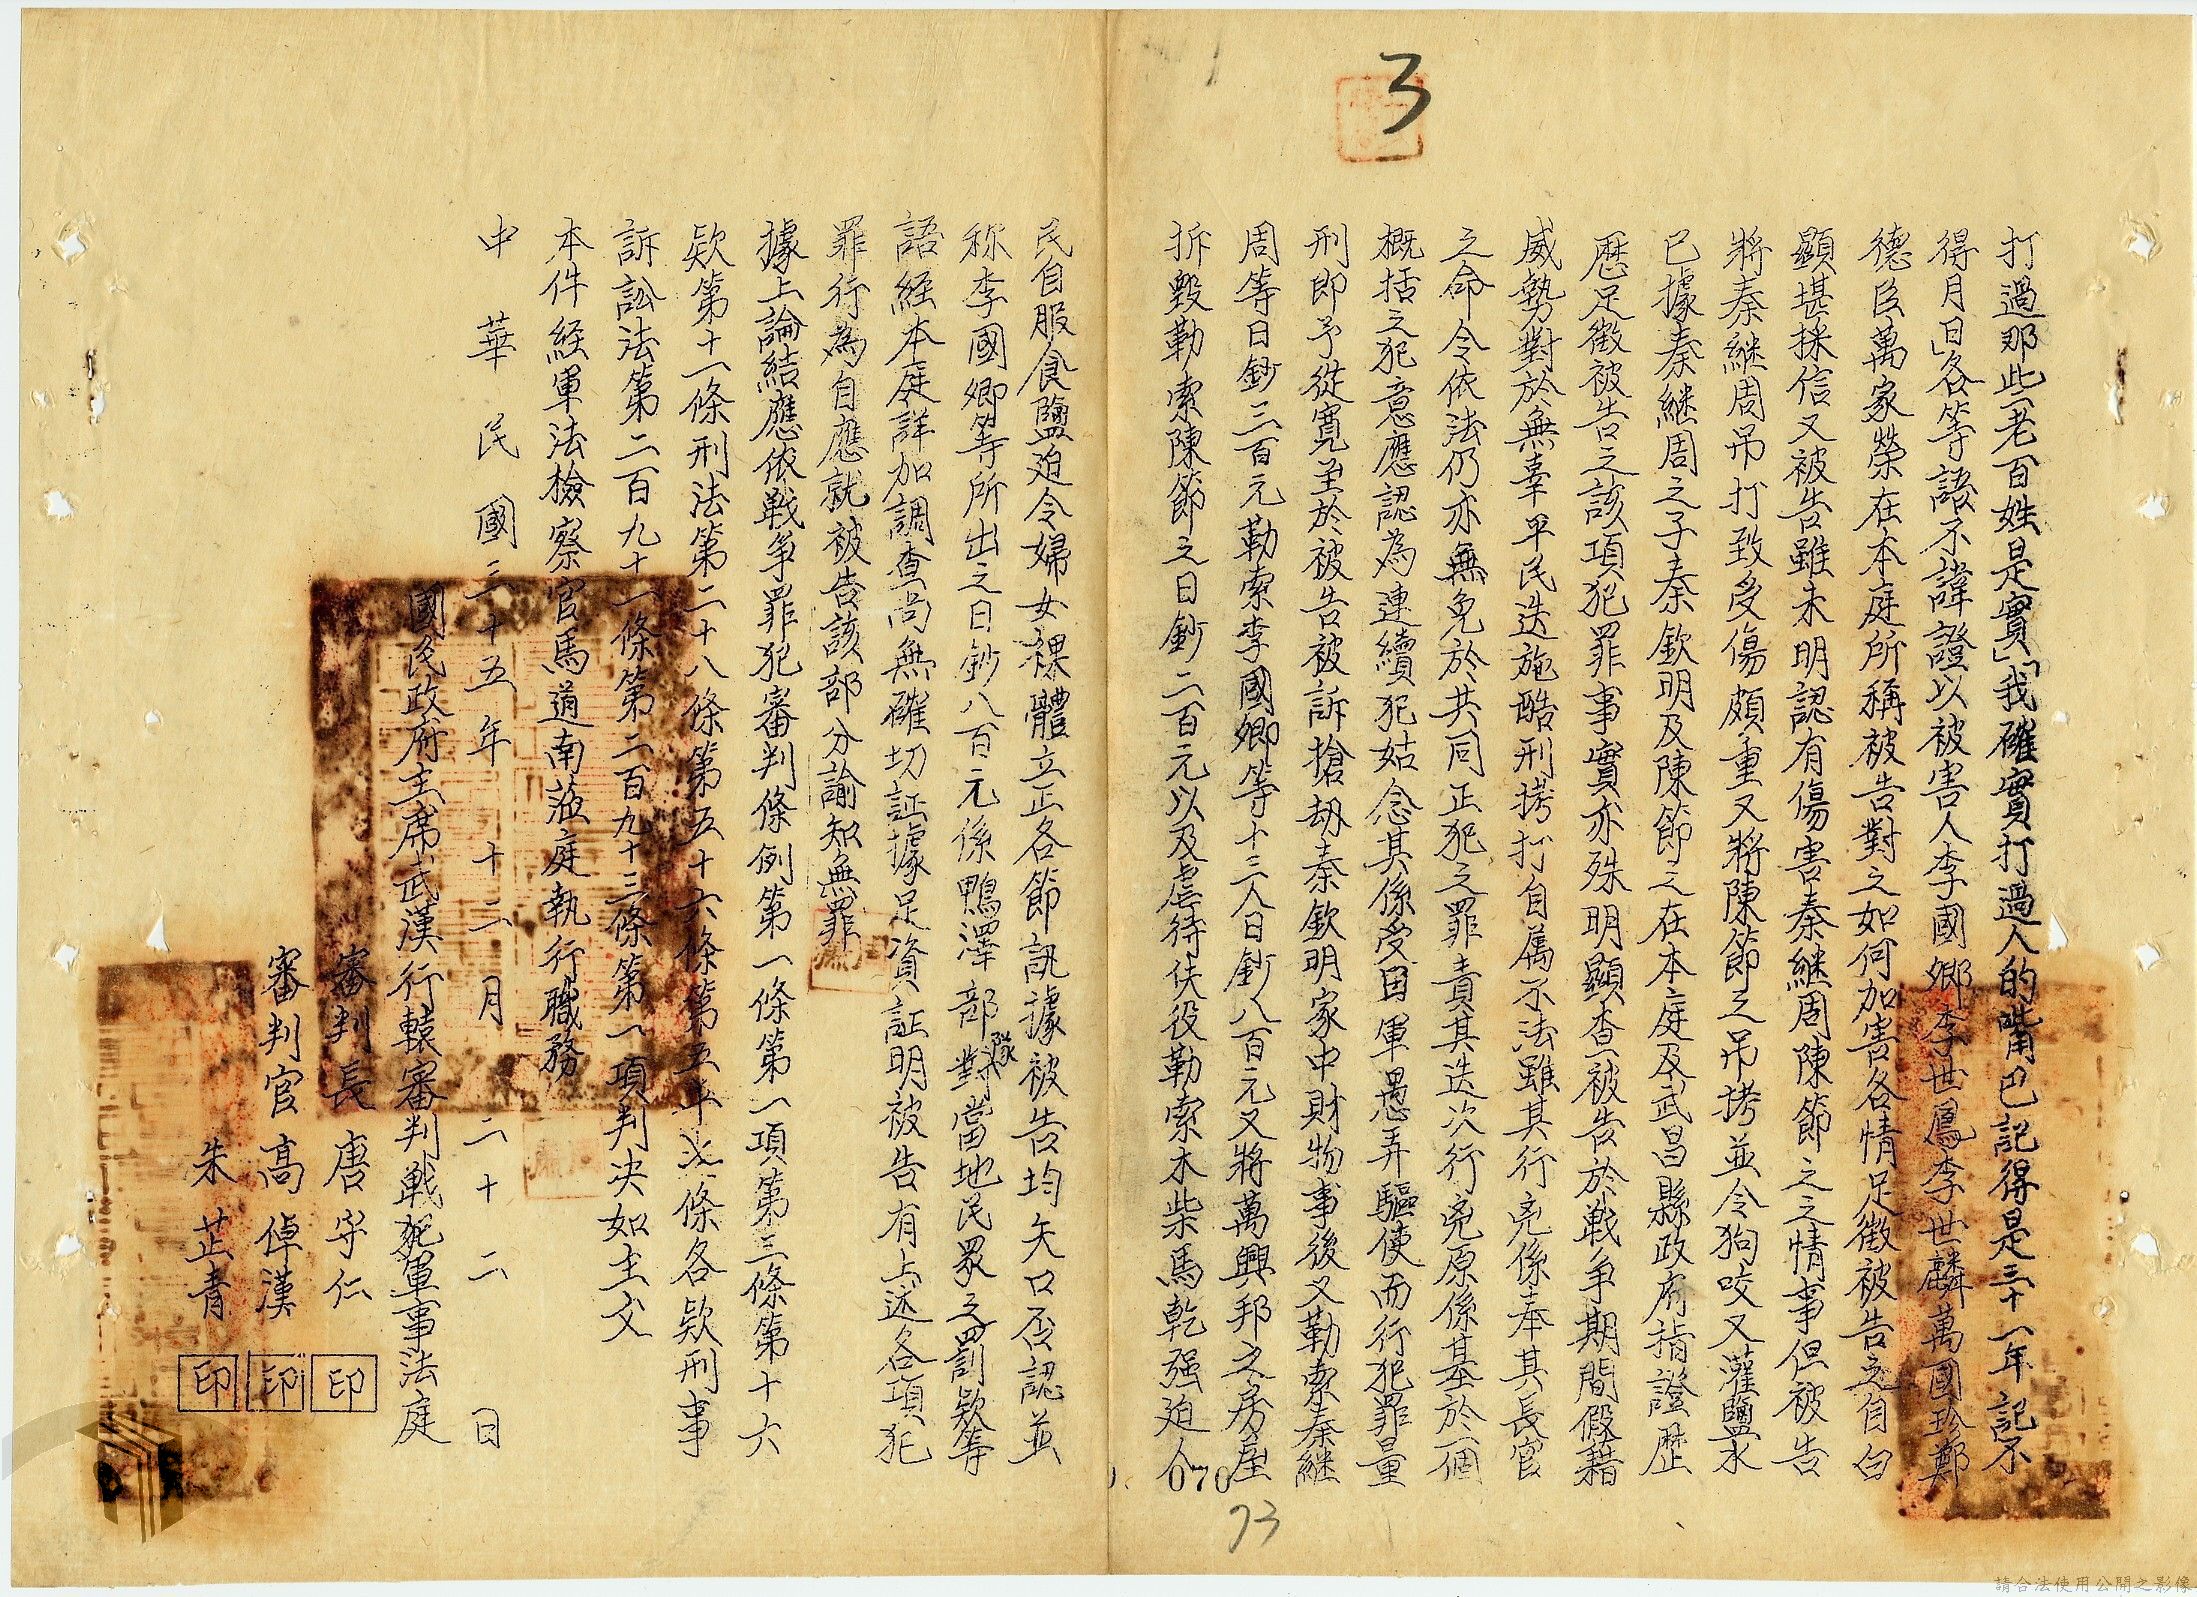 3
打過那些老百姓是實」「我確實打過人的嘴巴記得是三十一年記不
得月日」各等語不諱證以被害人李國卿李世鳳李世麟萬國珍鄭
德臣萬家榮在本庭所稱被告對之如何加害各情足徵被告之自白
顯堪採信又被告雖未明認有傷害秦継周陳節之之情事但被告
將秦継周吊打致受傷頗重又將陳節之吊拷並令狗咬又灌鹽水
已據秦継周之子秦欽明及陳節之在本庭及武昌縣政府指證歷
歷足徵被告之該項犯罪事實亦殊明顯查被告於戰爭期間假藉
威勢對於無辜平民迭施酷刑拷打自屬不法雖其行為係奉其長官
之命令依法仍亦無免於共同正犯之罪責其迭次行為原係基於一個
概括之犯意應認為連續犯姑念其係受困軍愚弄驅使而行犯罪量
刑即予從寬至於被告被訴搶劫秦欽明家中財物事後又勒索秦継
周等日鈔三百元勒索李國卿等十三人日鈔八百元又將萬興邦之房屋
拆毀勒索陳節之日鈔二百元以及虐待伕役勒索木柴馬乾强迫人
民自服食鹽迫令婦女裸體立正各節訊據被告均矢口否認並
称李國卿等所出之日鈔八百元係鴨澤部隊對當地民眾之罰欵等
語經本庭詳加調查尚無確切証據足資証明被告有上述各項犯
罪行為自應就被告該部分諭知無罪
據上論結應依戰爭罪犯審判條例第一條第一項第三條第十六
欵第十一條刑法第二十八條第五十六條第五十 條各欵刑事
訴訟法第二百九十一條第二百九十三條第一項判決如主文
本件經軍法檢察官馬道南蒞庭執行職務
中華民國三十五年十二月二十二日
國民政府主席武漢行轅審判戰犯軍事法庭
審判長唐守仁 印
審判官高倬漢 印
朱芷青 印
070
73
請合法使用公開之影像